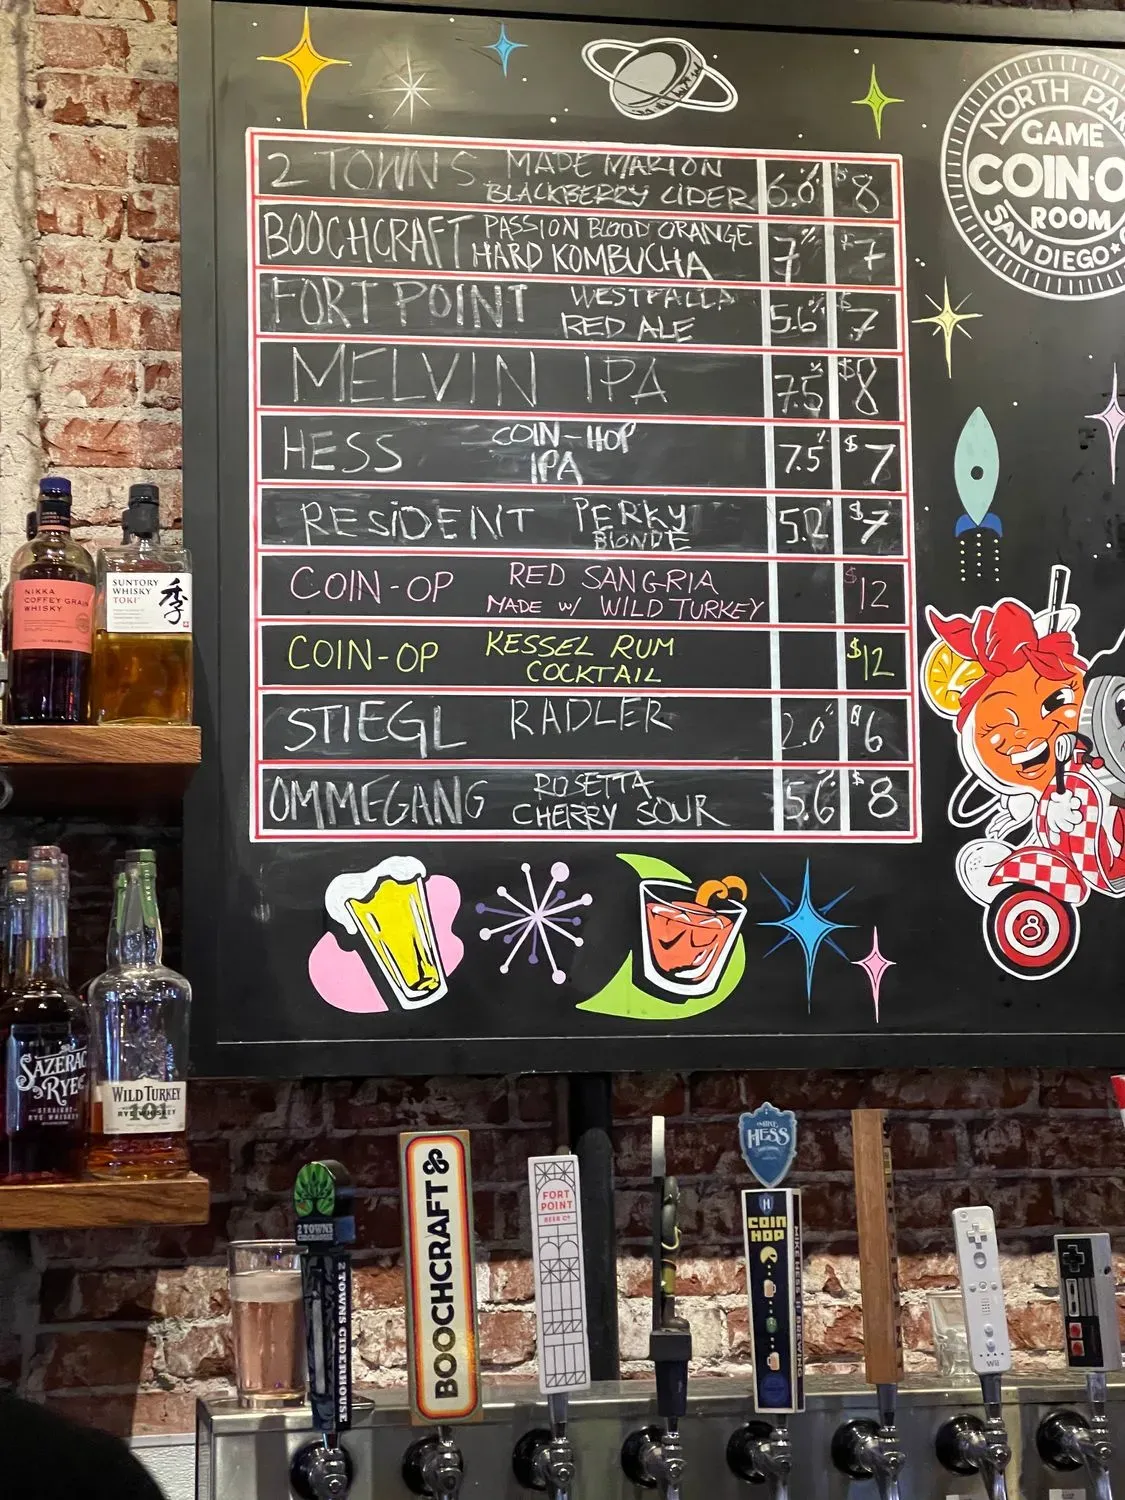 NORTH PAR
GAME
COIN-O
ROOM
SAN DIEGO
2 TOWNS MADE MARION BLACKBERRY CIDER 6.0% $8
BOOCHCRAFT PASSION BLOOD ORANGE HARD KOMBUCHA 7% $7
FORT POINT WESTFALIA RED ALE 5.6% $7
MELVIN IPA 7.5% $8
HESS COIN-HOP IPA 7.5% $7
RESIDENT PERKY BLONDE 5.2% $7
COIN-OP RED SANGRIA MADE W/ WILD TURKEY $12
COIN-OP KESSEL RUM COCKTAIL $12
STIEGL RADLER 2.0% $6
OMMEGANG ROSETTA CHERRY SOUR 5.6% $8
8
NIKKA
COFFEY GRAIN
WHISKY
SUNTORY
WHISKY
TOKI
季
SAZERAC
RYE
STRAIGHT
RYE WHISKEY
WILD TURKEY
101
RYE WHISKEY
2 TOWNS
CIDERHOUSE
2 TOWNS CIDERHOUSE
BOOCHCRAFT
FORT
POINT
BEER CO
MIKE
HESS
H
COIN
HOP
MIKE HESS BREWING
Wii